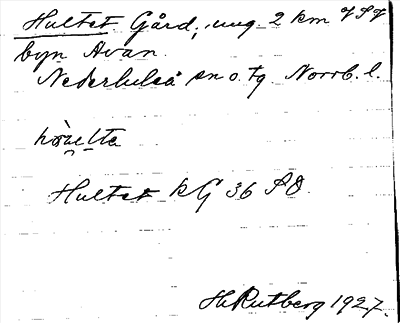 Hultet Gård, ung. 2 km
byn Avan.
Nederluleå sn o. tg Norrb. l.
Hultet kG 36 SO.
H. Rutberg 1927.